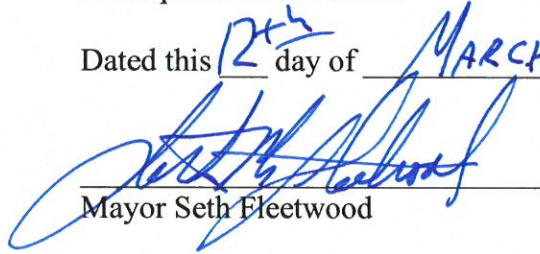 Dated this 12th day of MARCH
Mayor Seth Fleetwood